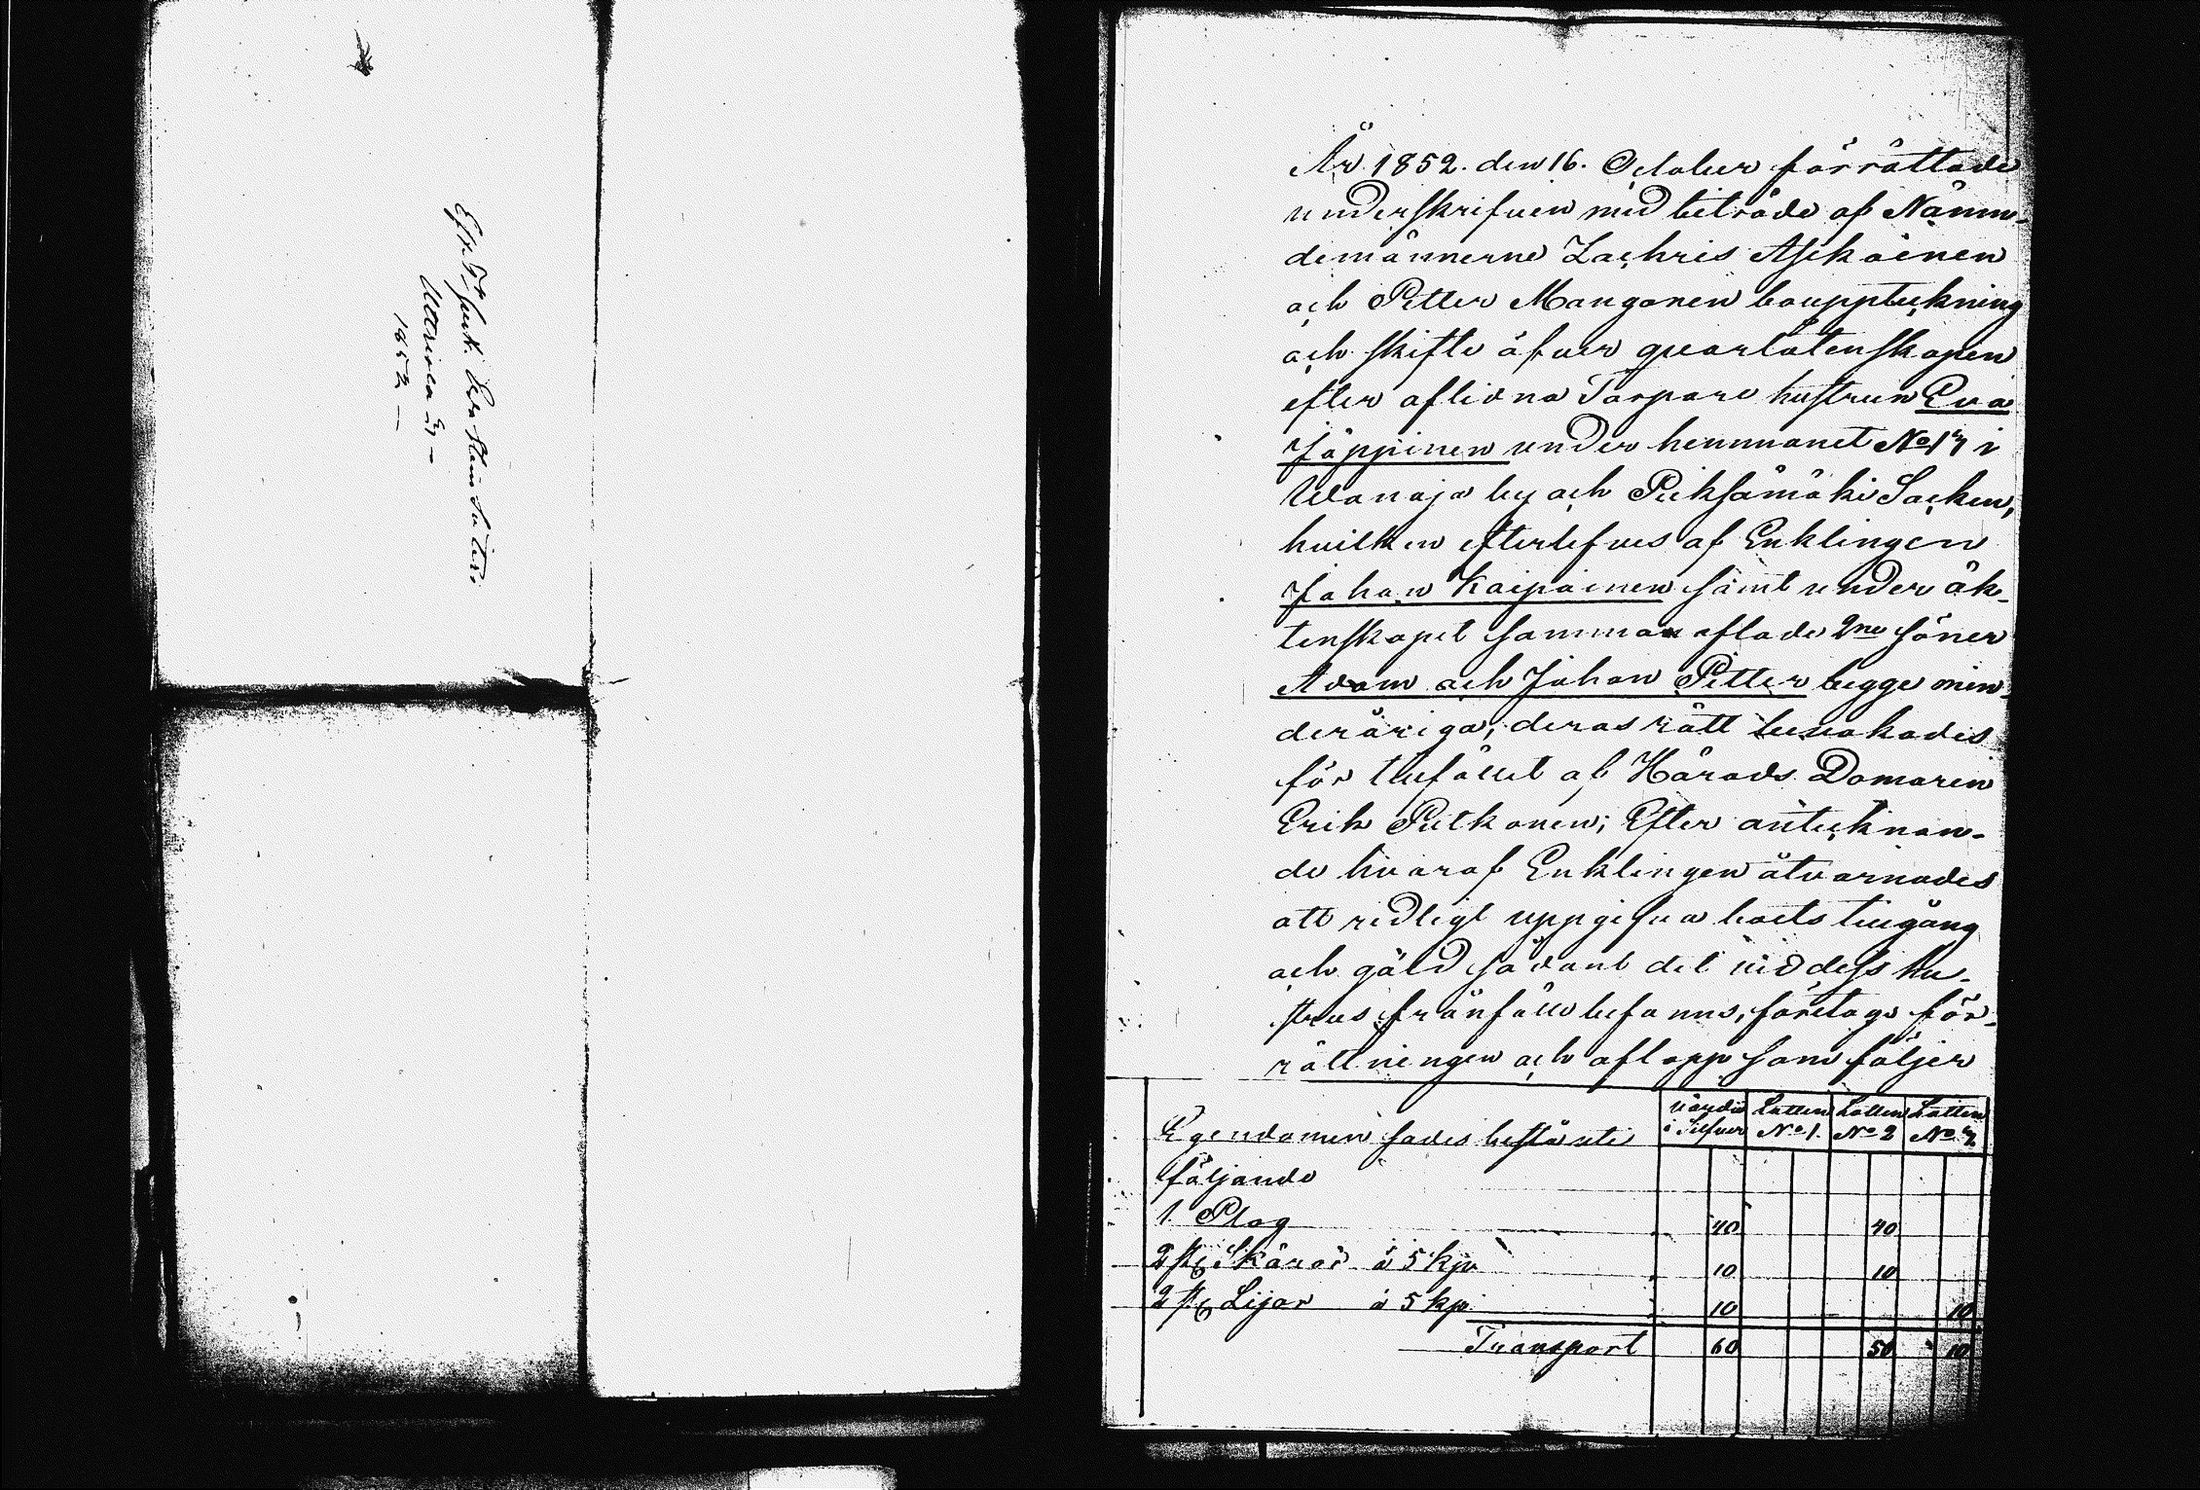 1852 –
År 1852. den 16. October förrättade
underskrifven med biträde af Nämn-
demännerne Zachris Asikainen
och Petter Manganen bouppteckning
och skifte öfver qvarlåtenskapen
efter aflidna Torpare hustrun Eva
Jäppinen under hemmanet No 17 i
Wanaja by och Pieksämäki Socken,
hvilken efterlefves af Enklingen
Johan Kaipainen samt under äk-
tenskapet samman aflade 2ne söner
Adam och Johan Petter begge min-
deråriga, deras rätt bevakades
för tillfället af Härads Domaren
Erik Pitkanen; Efter anteknan-
de hvaraf Enklingen åtvarnades
att redligt uppgifva boets tillgång
och gäld sådant det vid dess hu-
strus frånfälle befanns, företogs för-
rättningen och aflopp som följer
Egendomen sades bestå uti
värde i Silfver Lotten No 1. Lotten No 2 Lotten No 3
följande
1. Plog 40 40
2 st Skäror à 5 kp 10 10
2 st Lijar à 5 kp. 10 10
Transport 60 50 10